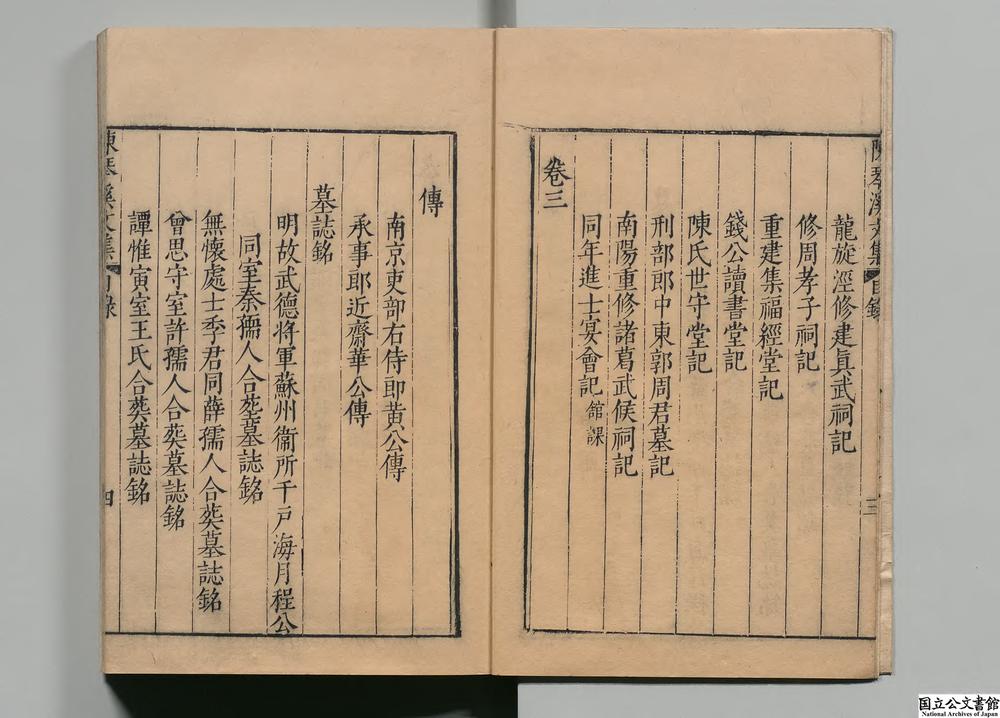 陳琴溪文集
目錄
三
龍旋涇修建眞武祠記
修周孝子祠記
重建集福經堂記
錢公讀書堂記
陳氏世守堂記
刑部郎中東郭周君墓記
南陽重修諸葛武侯祠記
同年進士宴會記館課
卷三
傳
南京吏部右侍郎黄公傳
承事郎近齋華公傳
墓誌銘
明故武德將軍蘇州衞所千戶海月程公
同室秦孺人合塟墓誌銘
無懷處士季君同薛孺人合葬墓誌銘
曾思守室許孺人合葬墓誌銘
譚惟寅室王氏合葬墓誌銘
陳琴溪文集
目錄
四
国立公文書館
National Archives of Japan